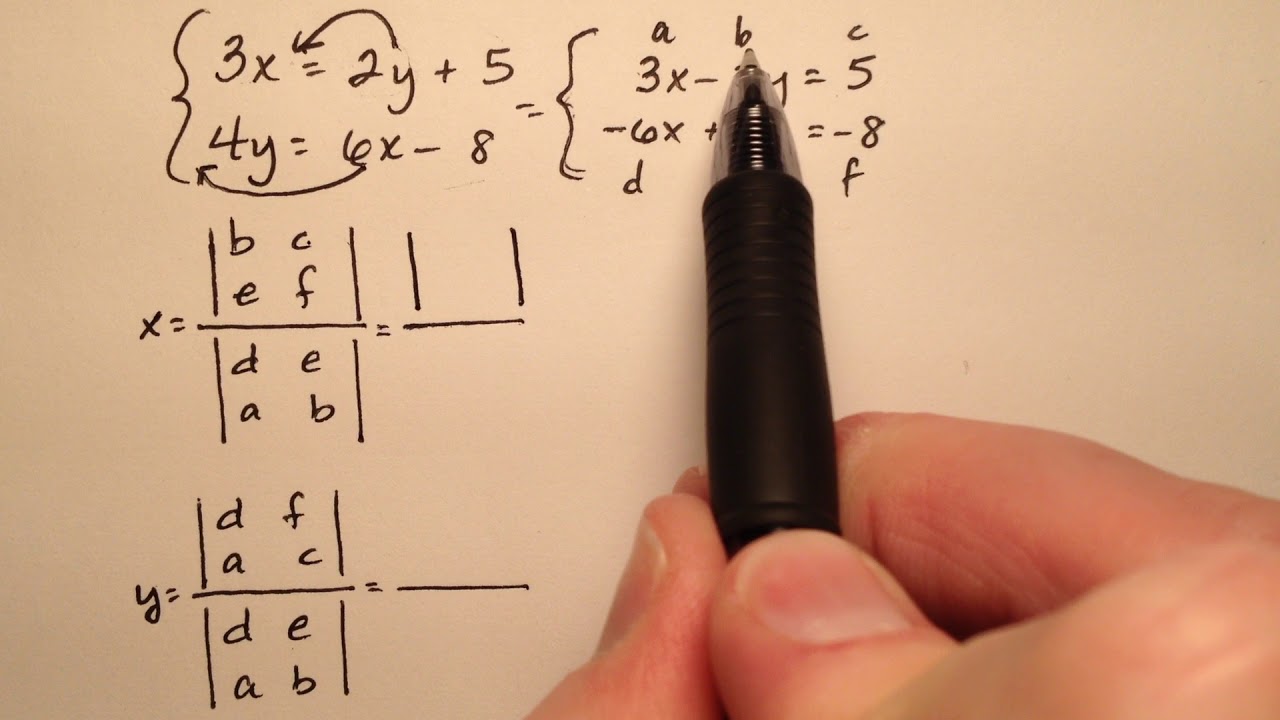 3x = 2y + 5
4y = 6x - 8
=
a b c
3x - y = 5
-6x + = -8
d f
x = | b c | = | |
| e f |
| d e |
| a b |
y = | d f | =
| a c |
| d e |
| a b |